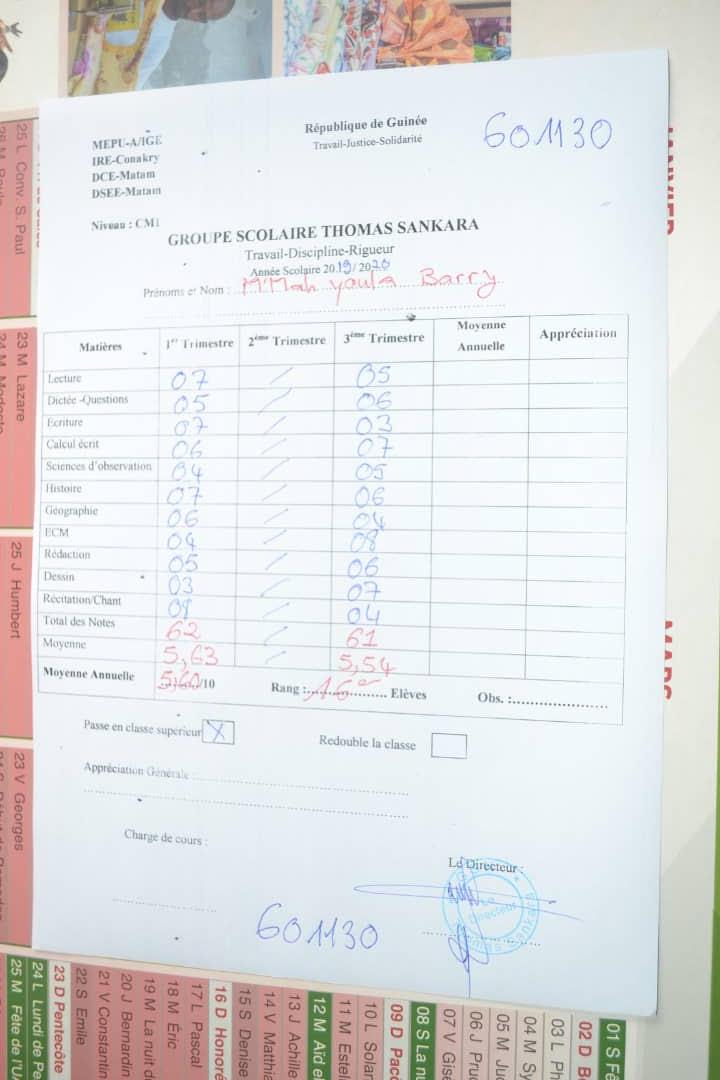 MEPU-A/IGE
IRE-Conakry
DCE-Matam
DSEE-Matam
République de Guinée
Travail-Justice-Solidarité
601130
Niveau : CM1
GROUPE SCOLAIRE THOMAS SANKARA
Travail-Discipline-Rigueur
Année Scolaire 2019/ 2020
Prénoms et Nom : M'Mah yaula Barry
Matières 1er Trimestre 2ème Trimestre 3ème Trimestre Moyenne Annuelle Appréciation
Lecture 07 / 05
Dictée -Questions 05 / 06
Ecriture 07 / 03
Calcul écrit 06 / 07
Sciences d'observation 04 / 05
Histoire 07 / 06
Géographie 06 / 04
ECM 04 / 08
Rédaction 05 / 06
Dessin 03 / 07
Récitation/Chant 08 / 04
Total des Notes 62 / 61
Moyenne 5,63 / 5,54
Moyenne Annuelle 5,60/10 Rang : 16e Elèves Obs. :
Passe en classe supérieur X Redouble la classe
Appréciation Générale :
Charge de cours :
Le Directeur :
Le Directeur
601130
25 L Conv. S. Paul
23 M Lazare
25 J Humbert
23 V Georges
25 M Fête de l'U
24 L Lundi de Pe
23 D Pentecôte
22 S Emile
21 V Constantin
20 J Bernardin
19 M La nuit d
18 M Eric
17 L Pascal
16 D Honoré
15 S Denise
14 V Matthia
13 J Achille
12 M Aïd el
11 M Estel
10 L Solan
09 D Pacô
08 S La nu
07 V Gise
06 J Prud
05 M Jud
04 M Sy
03 L Ph
02 D B
01 S Fê
MARS